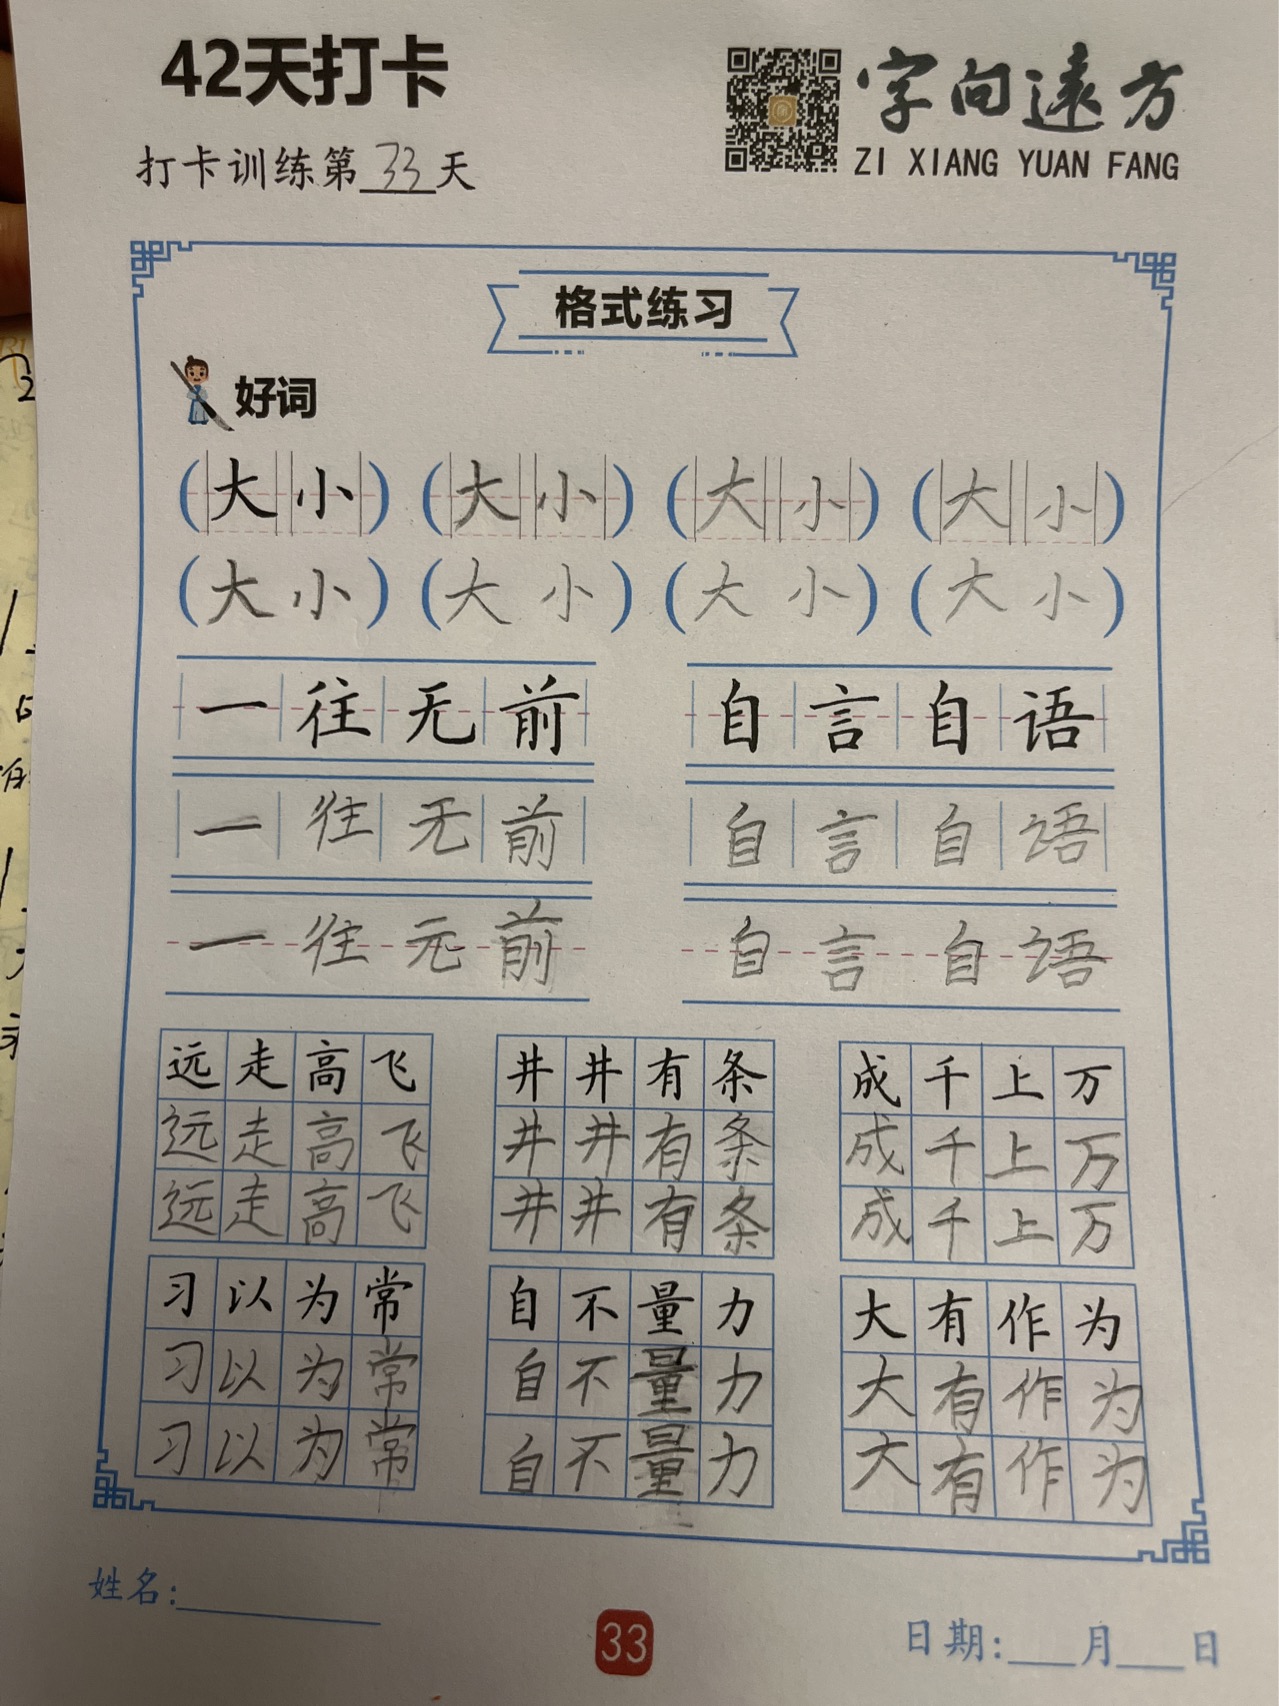 42天打卡
字向遠方
打卡训练第33天
ZI XIANG YUAN FANG
格式练习
好词
(大小) (大小) (大小) (大小)
(大小) (大小) (大小) (大小)
一往无前 自言自语
一往无前 自言自语
一往元前 自言自语
远走高飞 井井有条 成千上万
远走高飞 井井有条 成千上万
远走高飞 井井有条 成千上万
习以为常 自不量力 大有作为
习以为常 自不量力 大有作为
习以为常 自不量力 大有作为
姓名:
33
日期:___月___日